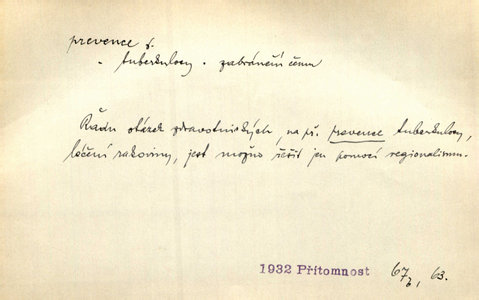 prevence f.
" tuberkulosy " zabránění čemu
Řadu otázek zdravotnických, na př. prevence tuberkulosy,
léčení rakoviny, jest možno řešiti jen pomocí regionalismu.
1932 Přítomnost 67, 63.